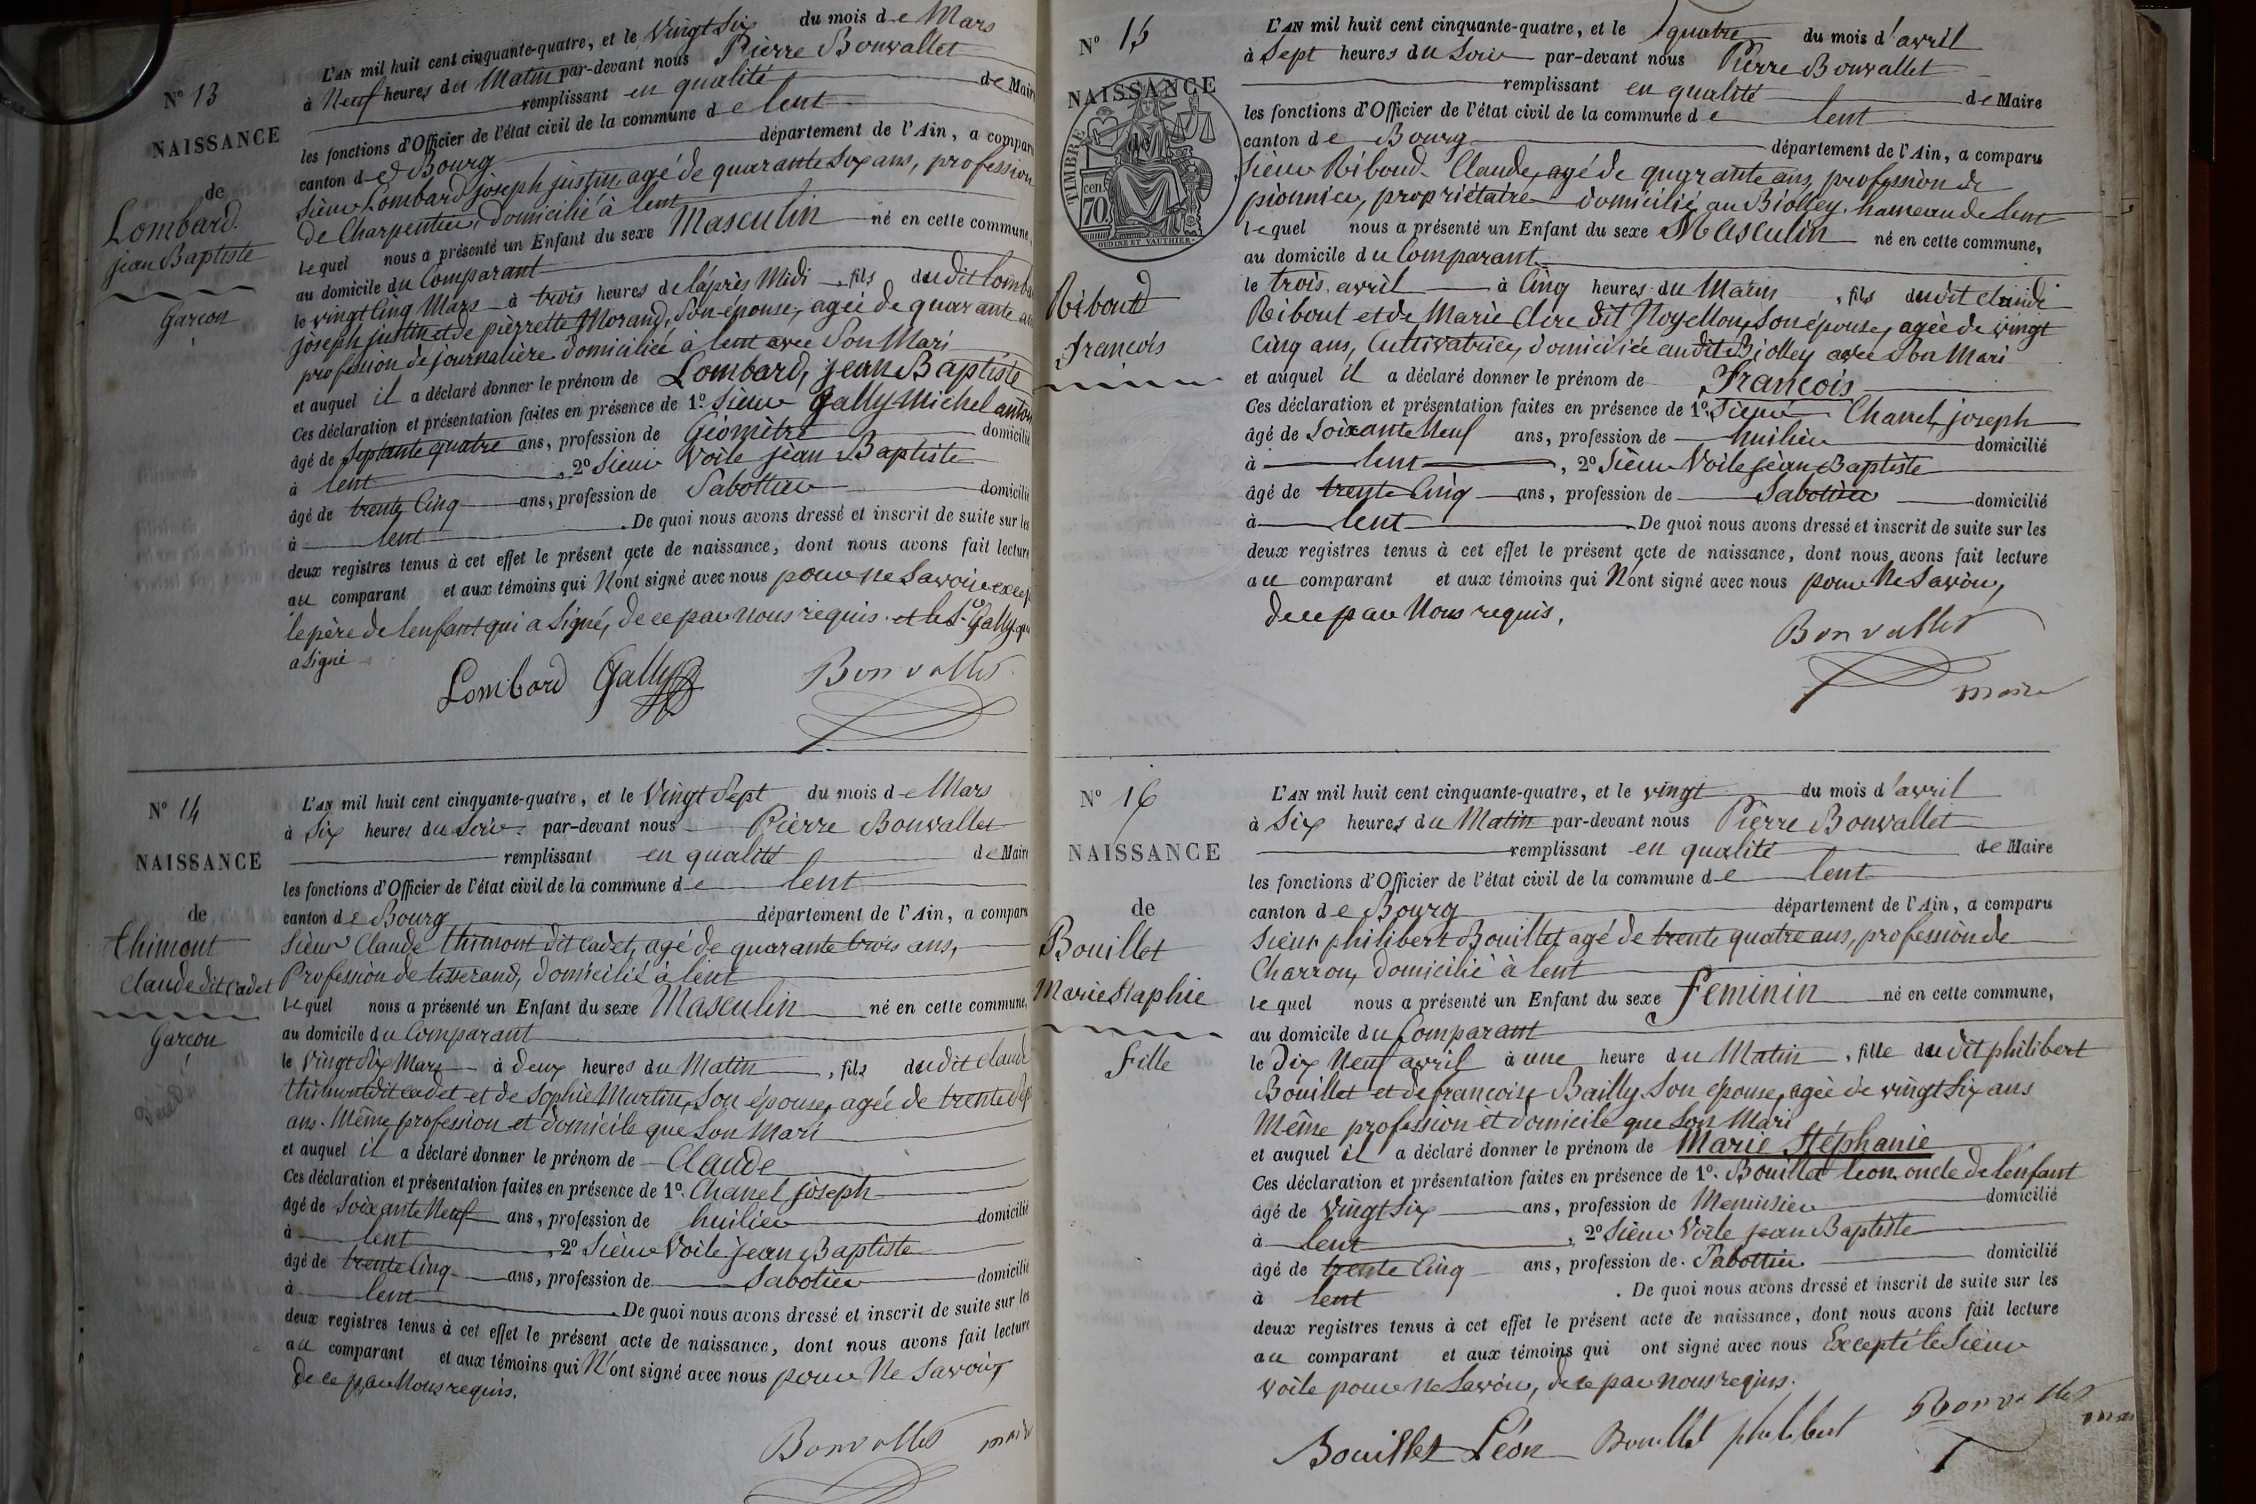 N° 13
NAISSANCE
de
Lombard
jean Baptiste
Garçon
L'AN mil huit cent cinquante-quatre, et le Vingt Six du mois de Mars
à Neuf heures du Matin par-devant nous Pierre Bonvallet
remplissant en qualité de Maire
les fonctions d'Officier de l'état civil de la commune de lent
canton de Bourg département de l'Ain, a comparu
Sieur Lombard joseph justin agé de quarante Six ans, profession
de Charpentier, domicilié à lent
lequel nous a présenté un Enfant du sexe Masculin né en cette commune,
au domicile du Comparant
le vingt Cinq Mars à trois heures de l'après Midi, fils du dit Lomba
joseph justin et de pierrette Morand, Son épouse, agée de quarante
profession de journalière domiciliée à lent avec Son Mari
et auquel il a déclaré donner le prénom de Lombard, jean Baptiste
Ces déclaration et présentation faites en présence de 1° Sieur Gally Michel anton
âgé de Septante quatre ans, profession de Géomètre domicilié
à lent, 2° Sieur Voile jean Baptiste
âgé de trente Cinq ans, profession de Sabottier domicilié
à lent. De quoi nous avons dressé et inscrit de suite sur les
deux registres tenus à cet effet le présent acte de naissance, dont nous avons fait lecture
au comparant et aux témoins qui N'ont signé avec nous pour Ne Savoir excep
le père de l'enfant qui a Signé, de ce par nous requis. et le S. Gally qui
a Signé
Lombard Gally Bonvallet
N° 14
NAISSANCE
de
thimont
Claude dit Cadet
Garçon
L'AN mil huit cent cinquante-quatre, et le Vingt Sept du mois de Mars
à Six heures du Soir par-devant nous Pierre Bonvallet
remplissant en qualité de Maire
les fonctions d'Officier de l'état civil de la commune de lent
canton de Bourg département de l'Ain, a comparu
Sieur Claude thimont dit Cadet, agé de quarante trois ans,
Profession de tisserand, domicilié à lent
lequel nous a présenté un Enfant du sexe Masculin né en cette commune,
au domicile du Comparant
le Vingt Six Mars à deux heures du Matin, fils du dit Claude
thimont dit cadet et de Sophie Murtin, Son épouse, agée de trente
ans. Même profession et domicile que Son Mari
et auquel il a déclaré donner le prénom de Claude
Ces déclaration et présentation faites en présence de 1° Chanel joseph
âgé de Soixante Neuf ans, profession de huilier domicilié
à lent, 2° Sieur Voile jean Baptiste
âgé de trente Cinq ans, profession de Sabotier domicilié
à lent. De quoi nous avons dressé et inscrit de suite sur les
deux registres tenus à cet effet le présent acte de naissance, dont nous avons fait lecture
au comparant et aux témoins qui N'ont signé avec nous pour Ne Savoir,
de ce par Nous requis.
Bonvallet maire
N° 15
NAISSANCE
TIMBRE
70 cen
OUDINE ET VAUTHIER
Riboud
françois
L'AN mil huit cent cinquante-quatre, et le quatre du mois d'avril
à Sept heures du Soir par-devant nous Pierre Bonvallet
remplissant en qualité de Maire
les fonctions d'Officier de l'état civil de la commune de lent
canton de Bourg département de l'Ain, a comparu
Sieur Riboud Claude, agé de quarante ans, profession de
pionnier, propriétaire domicilié au Biolley hameau de lent
lequel nous a présenté un Enfant du sexe Masculin né en cette commune,
au domicile du Comparant
le trois avril à Cinq heures du Matin, fils du dit Claude
Ribout et de Marie Clere dit Noyellon, Son épouse, agée de vingt
Cinq ans, Cultivatrice, domiciliée au dit Biolley avec Son Mari
et auquel il a déclaré donner le prénom de François
Ces déclaration et présentation faites en présence de 1° Sieur Chanel joseph
âgé de Soixante Neuf ans, profession de huilier domicilié
à lent, 2° Sieur Voile jean Baptiste
âgé de trente Cinq ans, profession de Sabotier domicilié
à lent. De quoi nous avons dressé et inscrit de suite sur les
deux registres tenus à cet effet le présent acte de naissance, dont nous avons fait lecture
au comparant et aux témoins qui N'ont signé avec nous pour Ne Savoir,
de ce par Nous requis.
Bonvallet
maire
N° 16
NAISSANCE
de
Bouillet
Marie Staphie
fille
L'AN mil huit cent cinquante-quatre, et le vingt du mois d'avril
à Six heures du Matin par-devant nous Pierre Bonvallet
remplissant en qualité de Maire
les fonctions d'Officier de l'état civil de la commune de lent
canton de Bourg département de l'Ain, a comparu
Sieur philibert Bouillet agé de trente quatre ans, profession de
Charron, domicilié à lent
lequel nous a présenté un Enfant du sexe feminin né en cette commune,
au domicile du Comparant
le Dix Neuf avril à une heure du Matin, fille du dit philibert
Bouillet et de francoise Bailly Son epouse, agée de vingt Six ans
Même profession et domicile que Son Mari
et auquel il a déclaré donner le prénom de Marie Stéphanie
Ces déclaration et présentation faites en présence de 1° Bouillet leon oncle de l'enfant
âgé de Vingt Six ans, profession de Menuisier domicilié
à lent, 2° Sieur Voile jean Baptiste
âgé de trente Cinq ans, profession de Sabottier domicilié
à lent. De quoi nous avons dressé et inscrit de suite sur les
deux registres tenus à cet effet le présent acte de naissance, dont nous avons fait lecture
au comparant et aux témoins qui ont signé avec nous Excepté le Sieur
Voile pour ne Savoir, de ce par nous requis.
Bouillet Léon Bouillet philibert Bonvallet